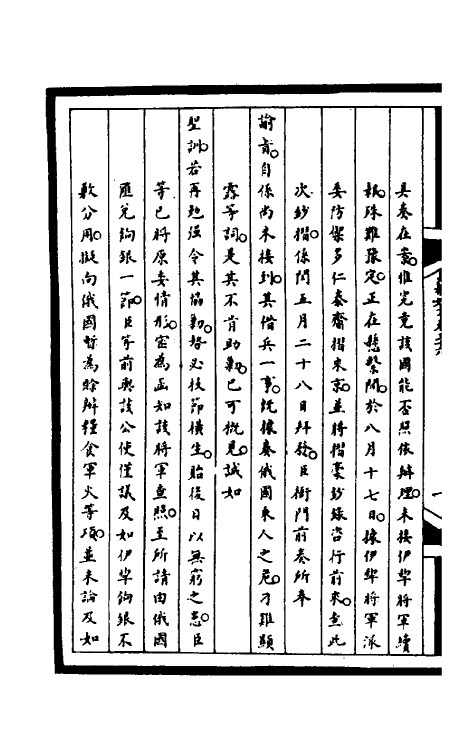 具奏在案惟究竟該國能否照依辦理未接伊犂將軍續
報殊難豫定正在懸繫間於八月十七日據伊犂將軍派
委防禦多仁泰齎摺來京並將摺稾鈔錄咨行前來查此
次鈔摺係閏五月二十八日拜發臣衙門前奏所奉
諭旨自係尚未接到其借兵一事旣據奏俄國東人之危刁難顯
露等詞是其不肯助勦已可槪見誠如
聖訓若再勉强令其協勦勢必枝節橫生貽後日以無窮之患臣
等已將原委情形密爲函知該將軍查照至所請由俄國
匯兌餉銀一節臣等前與該公使僅議及如伊犂餉銀不
敷分用擬向俄國暫爲賒辦糧食軍火等項並未論及如